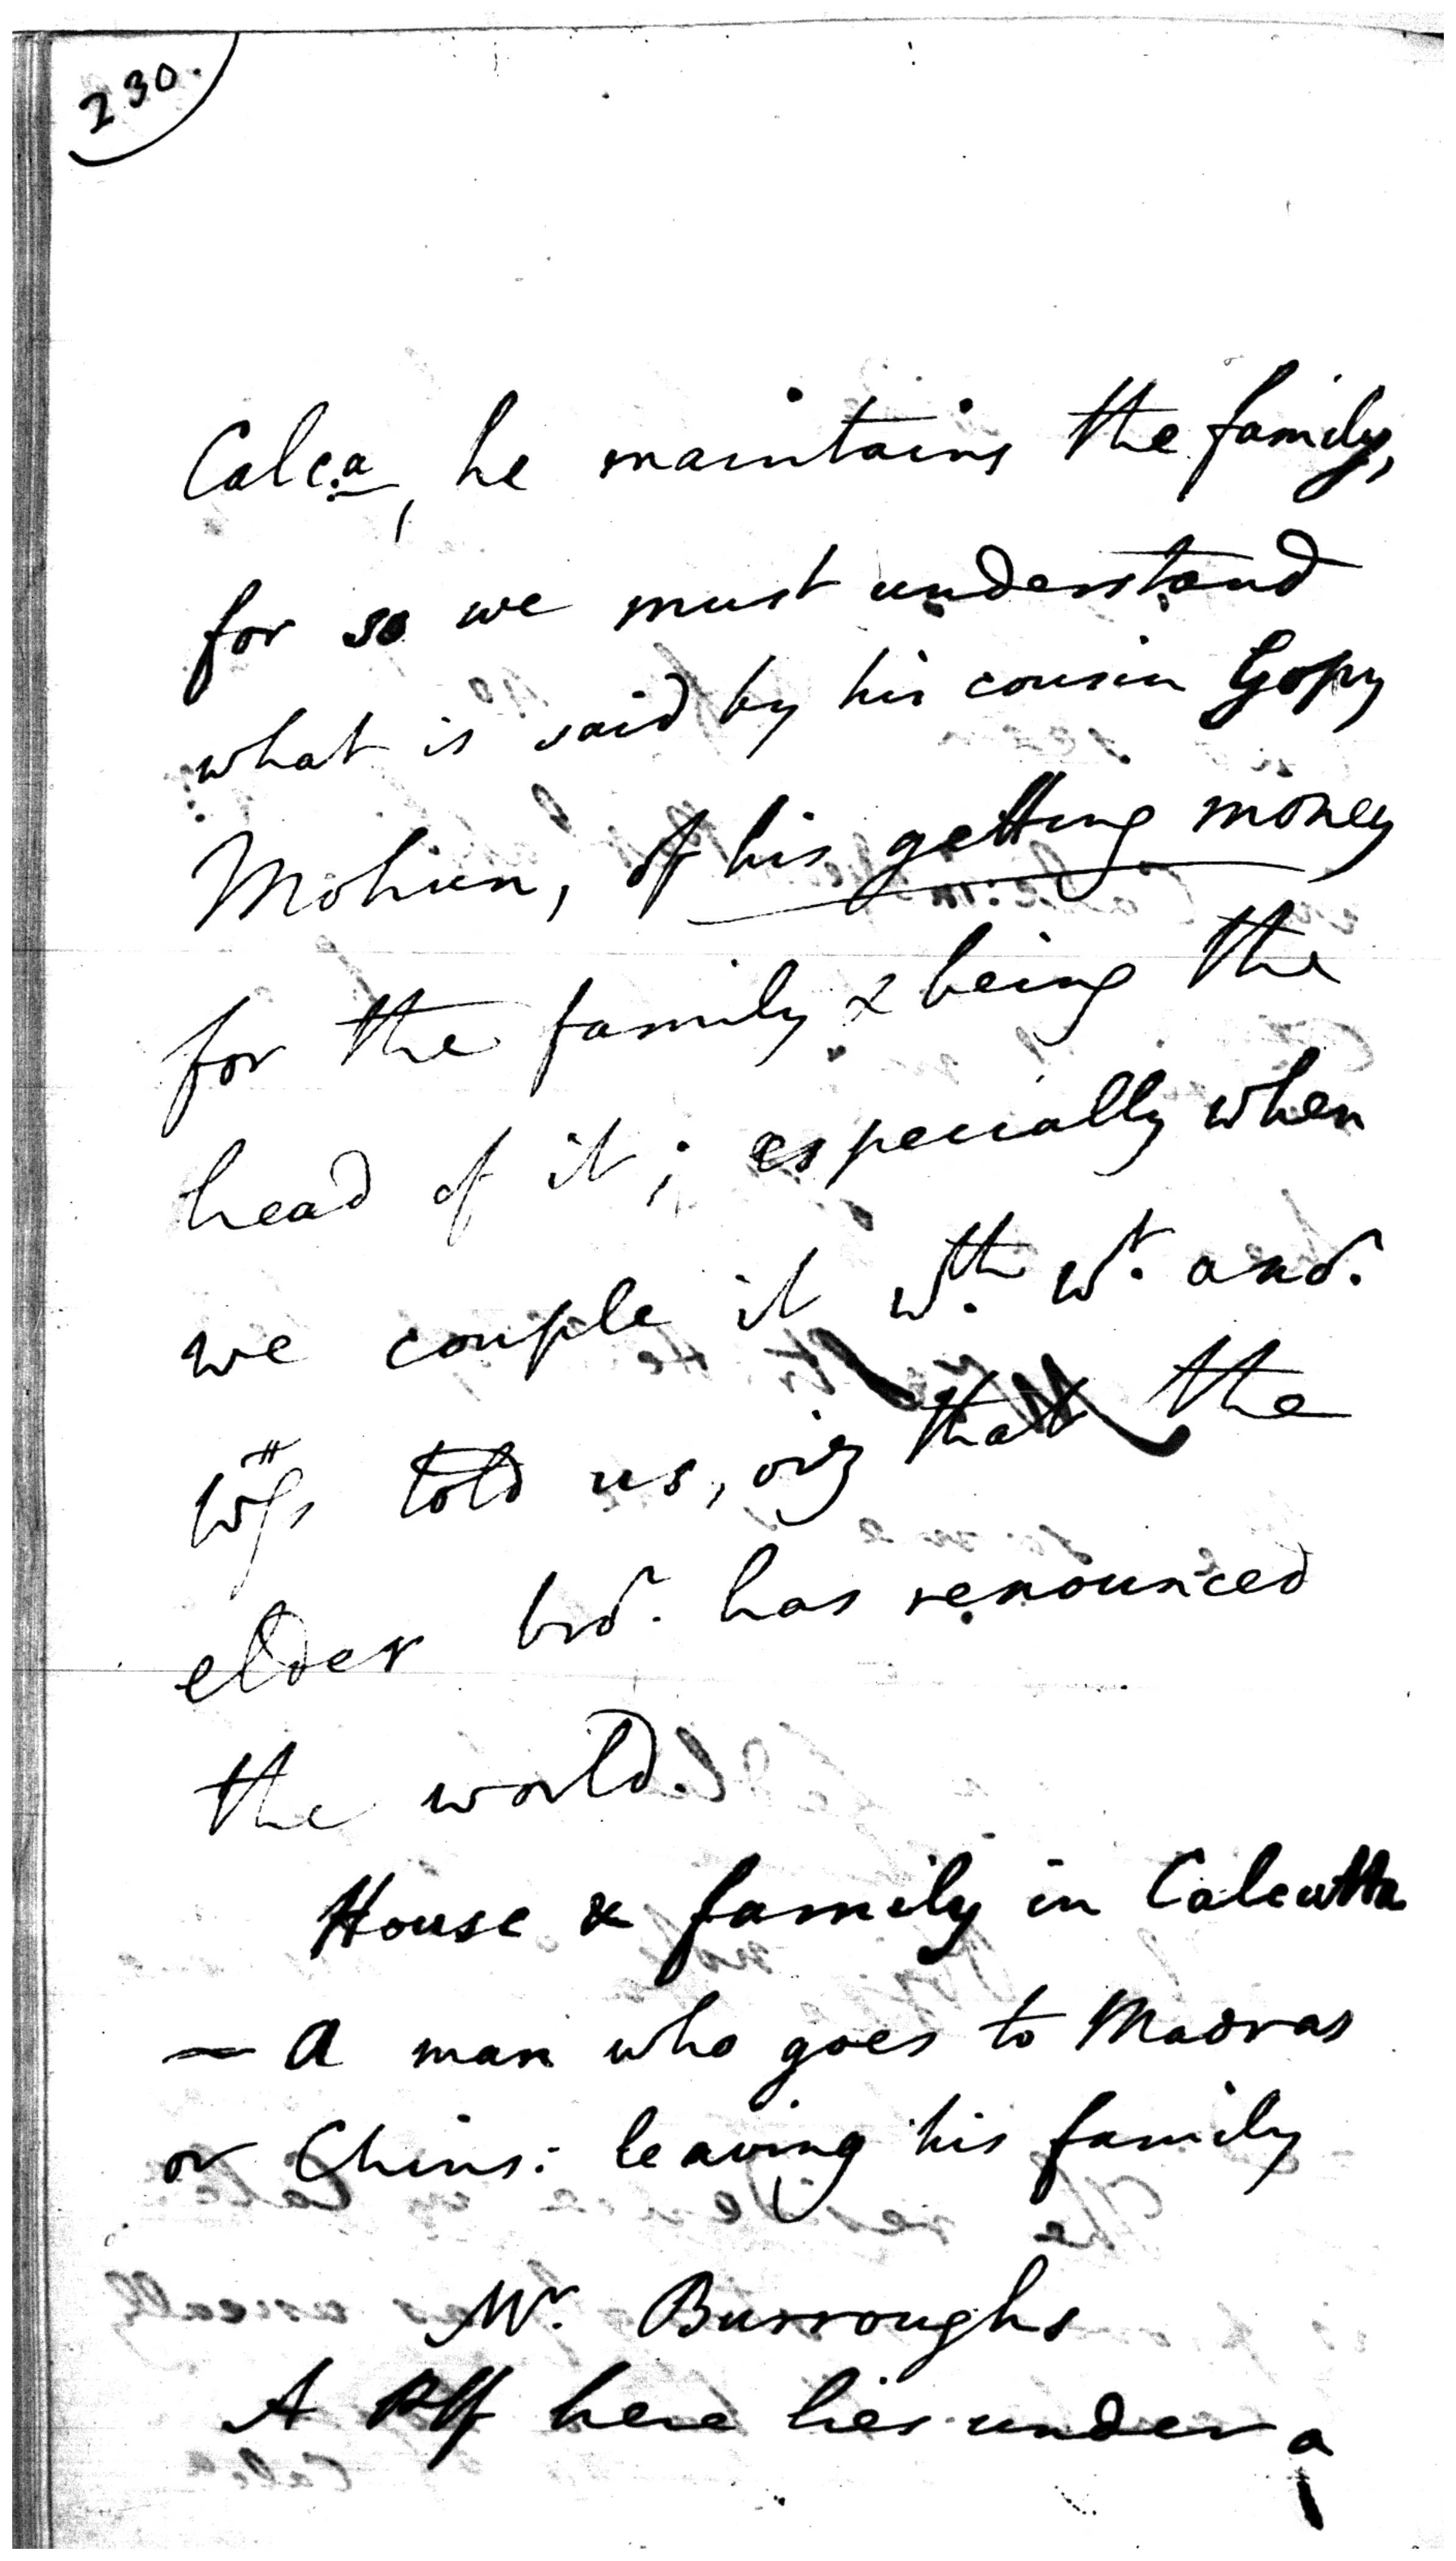 230.
Calc.a, he maintains the family,
for so we must understand
what is said by his cousin Gopy
Mohun, of his getting money
for the family & being the
head of it; especially when
we couple it wth. wt. anor.
told us, viz that the
elder bror. has renounced
the world.
House & family in Calcutta
— A man who goes to Madras
or Chins: leaving his family
Mr. Burroughs
A Plff here lies under a